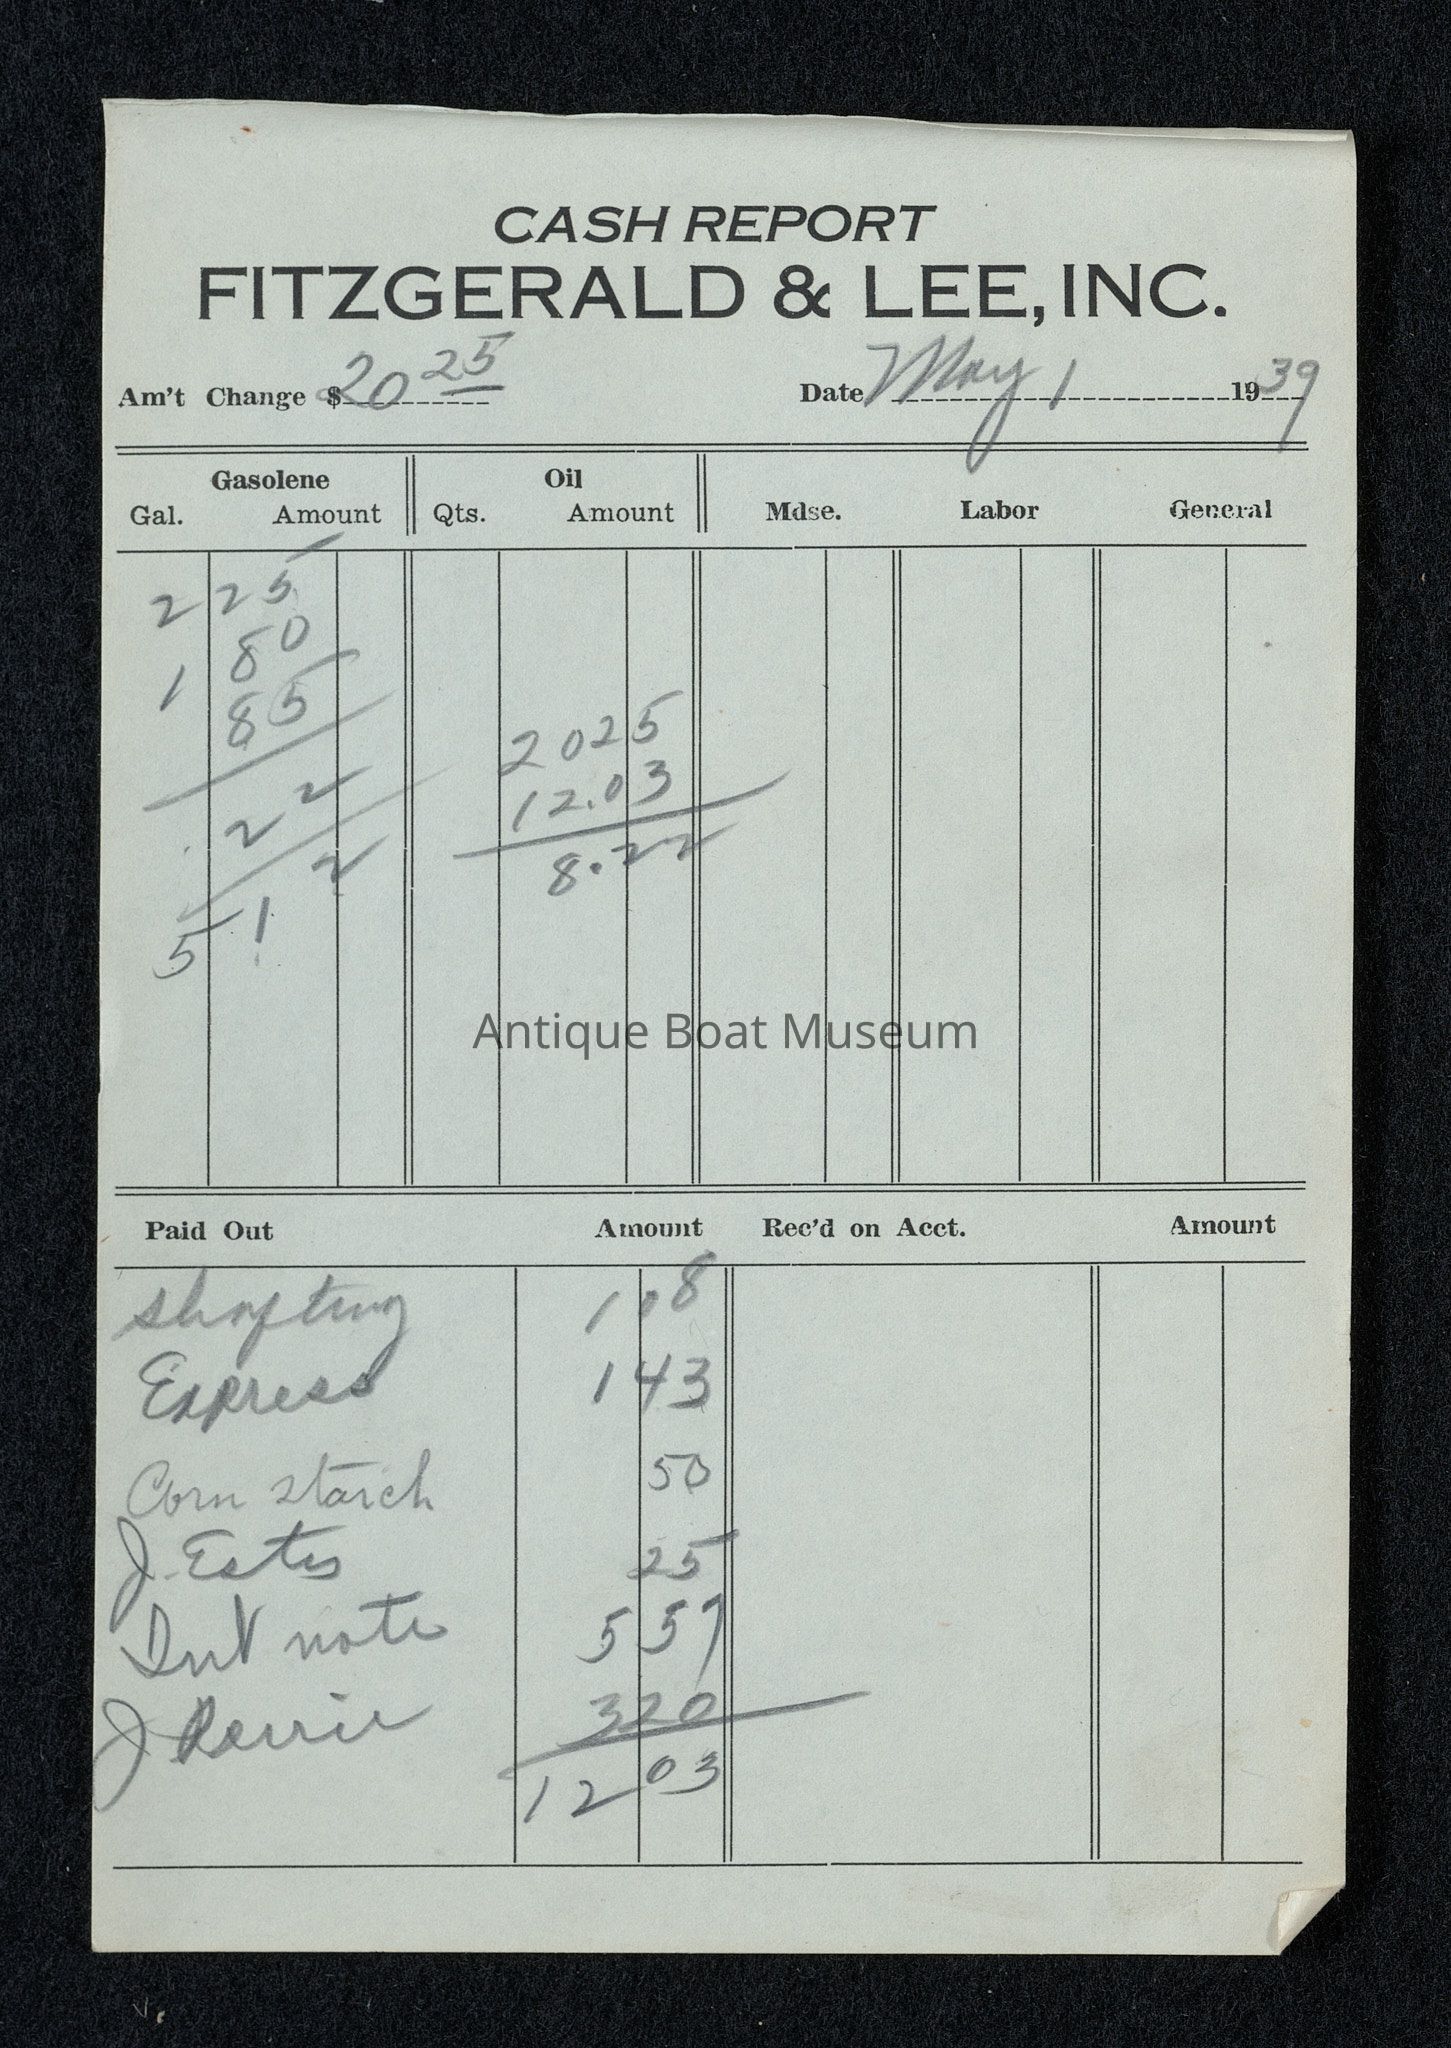 CASH REPORT
FITZGERALD & LEE, INC.
Am't Change $ 20 25 Date May 1 1939
Gasolene Oil
Gal. Amount Qts. Amount Mdse. Labor General
2 25
2
80
1
85
2025
2 2
12.03
2
8.22
5 1
Antique Boat Museum
Paid Out Amount Rec'd on Acct. Amount
Shafting 1 08
Express 1 43
Corn starch 50
J. Estes 25
Int note 5 57
J 3 20
12 03